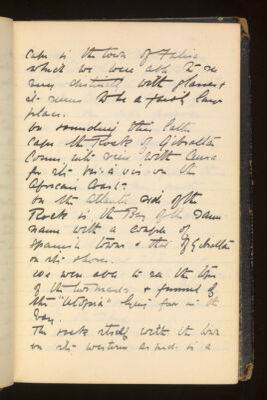 Cape is the town of Tarifa
which we were able to see
very distinctly with glasses &
it seems to be a fairly large
place.
On rounding this latter
cape the Rock of Gibraltar
comes into view with Ceuta
for its vis a vis on the
African Coast.
On the Atlantic side of the
Rock is the Bay of the same
name with a couple of
Spanish towns & that of Gibraltar
on its shores.
We were able to see the tops
of the two masts & funnel of
the "Utopia" lying far in the
bay.
The rock itself with the town
on its western side is a